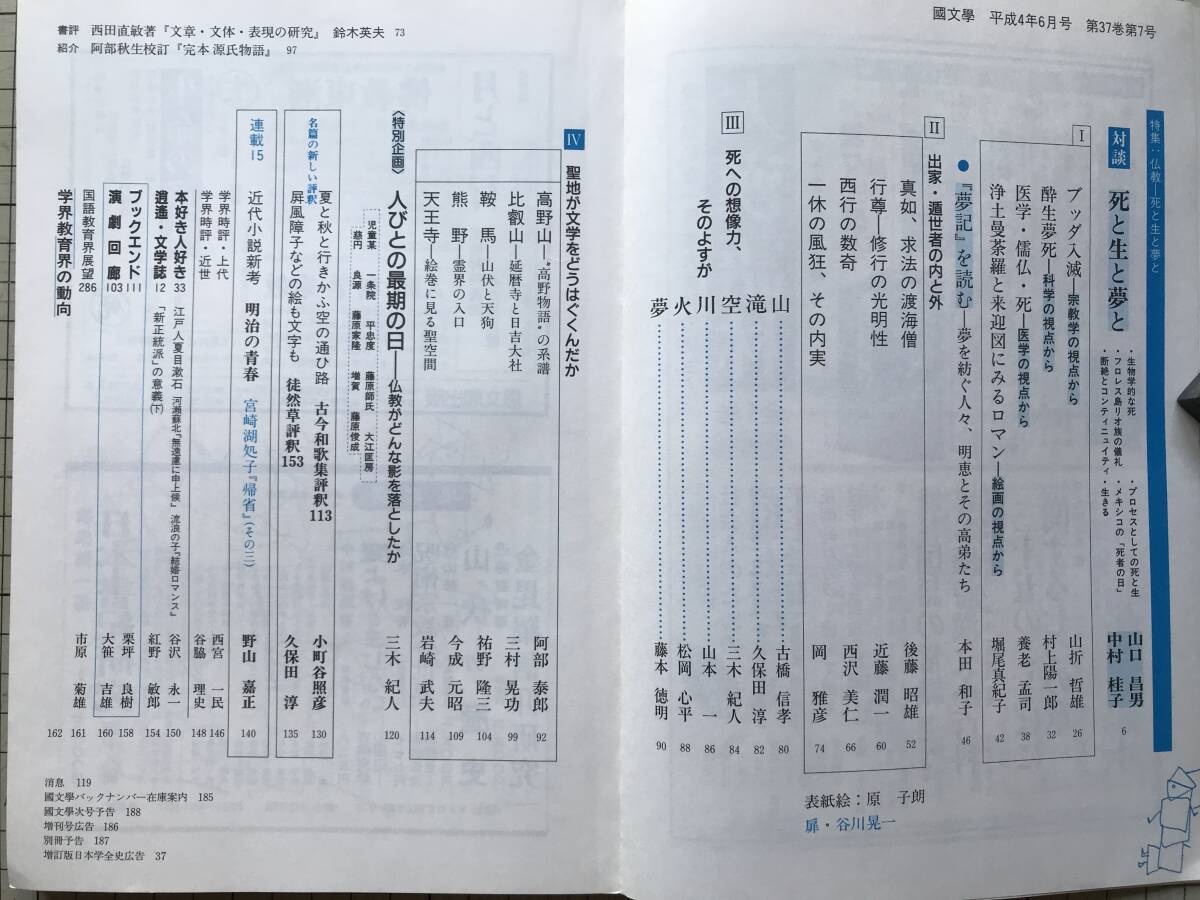 國文學　平成4年6月号　第37巻第7号
特集：仏教―死と生と夢と
対談　死と生と夢と
・生物学的な死　・プロセスとしての死と生
・フロレス島リオ族の儀礼　・メキシコの「死者の日」
・断絶とコンティニュイティ　・生きる
山口昌男
中村桂子　6
I
ブッダ入滅―宗教学の視点から　山折哲雄　26
酔生夢死―科学の視点から　村上陽一郎　32
医学・儒仏・死―医学の視点から　養老孟司　38
浄土曼荼羅と来迎図にみるロマン―絵画の視点から　堀尾真紀子　42
●『夢記』を読む―夢を紡ぐ人々、明恵とその高弟たち　本田和子　46
II　出家・遁世者の内と外
真如、求法の渡海僧　後藤昭雄　52
行尊―修行の光明性　近藤潤一　60
西行の数奇　西沢美仁　66
一休の風狂、その内実　岡雅彦　74
III　死への想像力、
そのよすが
山　古橋信孝　80
滝　久保田淳　82
空　三木紀人　84
川　山本一　86
火　松岡心平　88
夢　藤本徳明　90
表紙絵：原　子朗
扉・谷川晃一
書評　西田直敏著『文章・文体・表現の研究』　鈴木英夫　73
紹介　阿部秋生校訂『完本 源氏物語』　97
IV　聖地が文学をどうはぐくんだか
高野山―“高野物語”の系譜　阿部泰郎　92
比叡山―延暦寺と日吉大社　三村晃功　99
鞍馬―山伏と天狗　祐野隆三　104
熊野―霊界の入口　今成元昭　109
天王寺―絵巻に見る聖空間　岩崎武夫　114
〈特別企画〉　人びとの最期の日―仏教がどんな影を落としたか　三木紀人　120
児童某　一条院　平忠度　藤原師氏　大江匡房
慈円　良源　藤原家隆　増賀　藤原俊成
名篇の新しい評釈
夏と秋と行きかふ空の通ひ路　古今和歌集評釈113　小町谷照彦　130
屏風障子などの絵も文字も　徒然草評釈153　久保田淳　135
連載15　近代小説新考　明治の青春　宮崎湖処子『帰省』（その三）　野山嘉正　140
学界時評・上代　西宮一民　146
学界時評・近世　谷脇理史　148
本好き人好き33　江戸人夏目漱石　河瀬蘇北「無遠慮に申上候」　流浪の子「結婚ロマンス」　谷沢永一　150
逍遙・文学誌12　「新正統派」の意義（下）　紅野敏郎　154
ブックエンド111　栗坪良樹　158
演劇回廊103　大笹吉雄　160
国語教育界展望286　市原菊雄　161
学界教育界の動向　162
消息　119
國文學バックナンバー在庫案内　185
國文學次号予告　188
増刊号広告　186
別冊予告　187
増訂版日本学全史広告　37